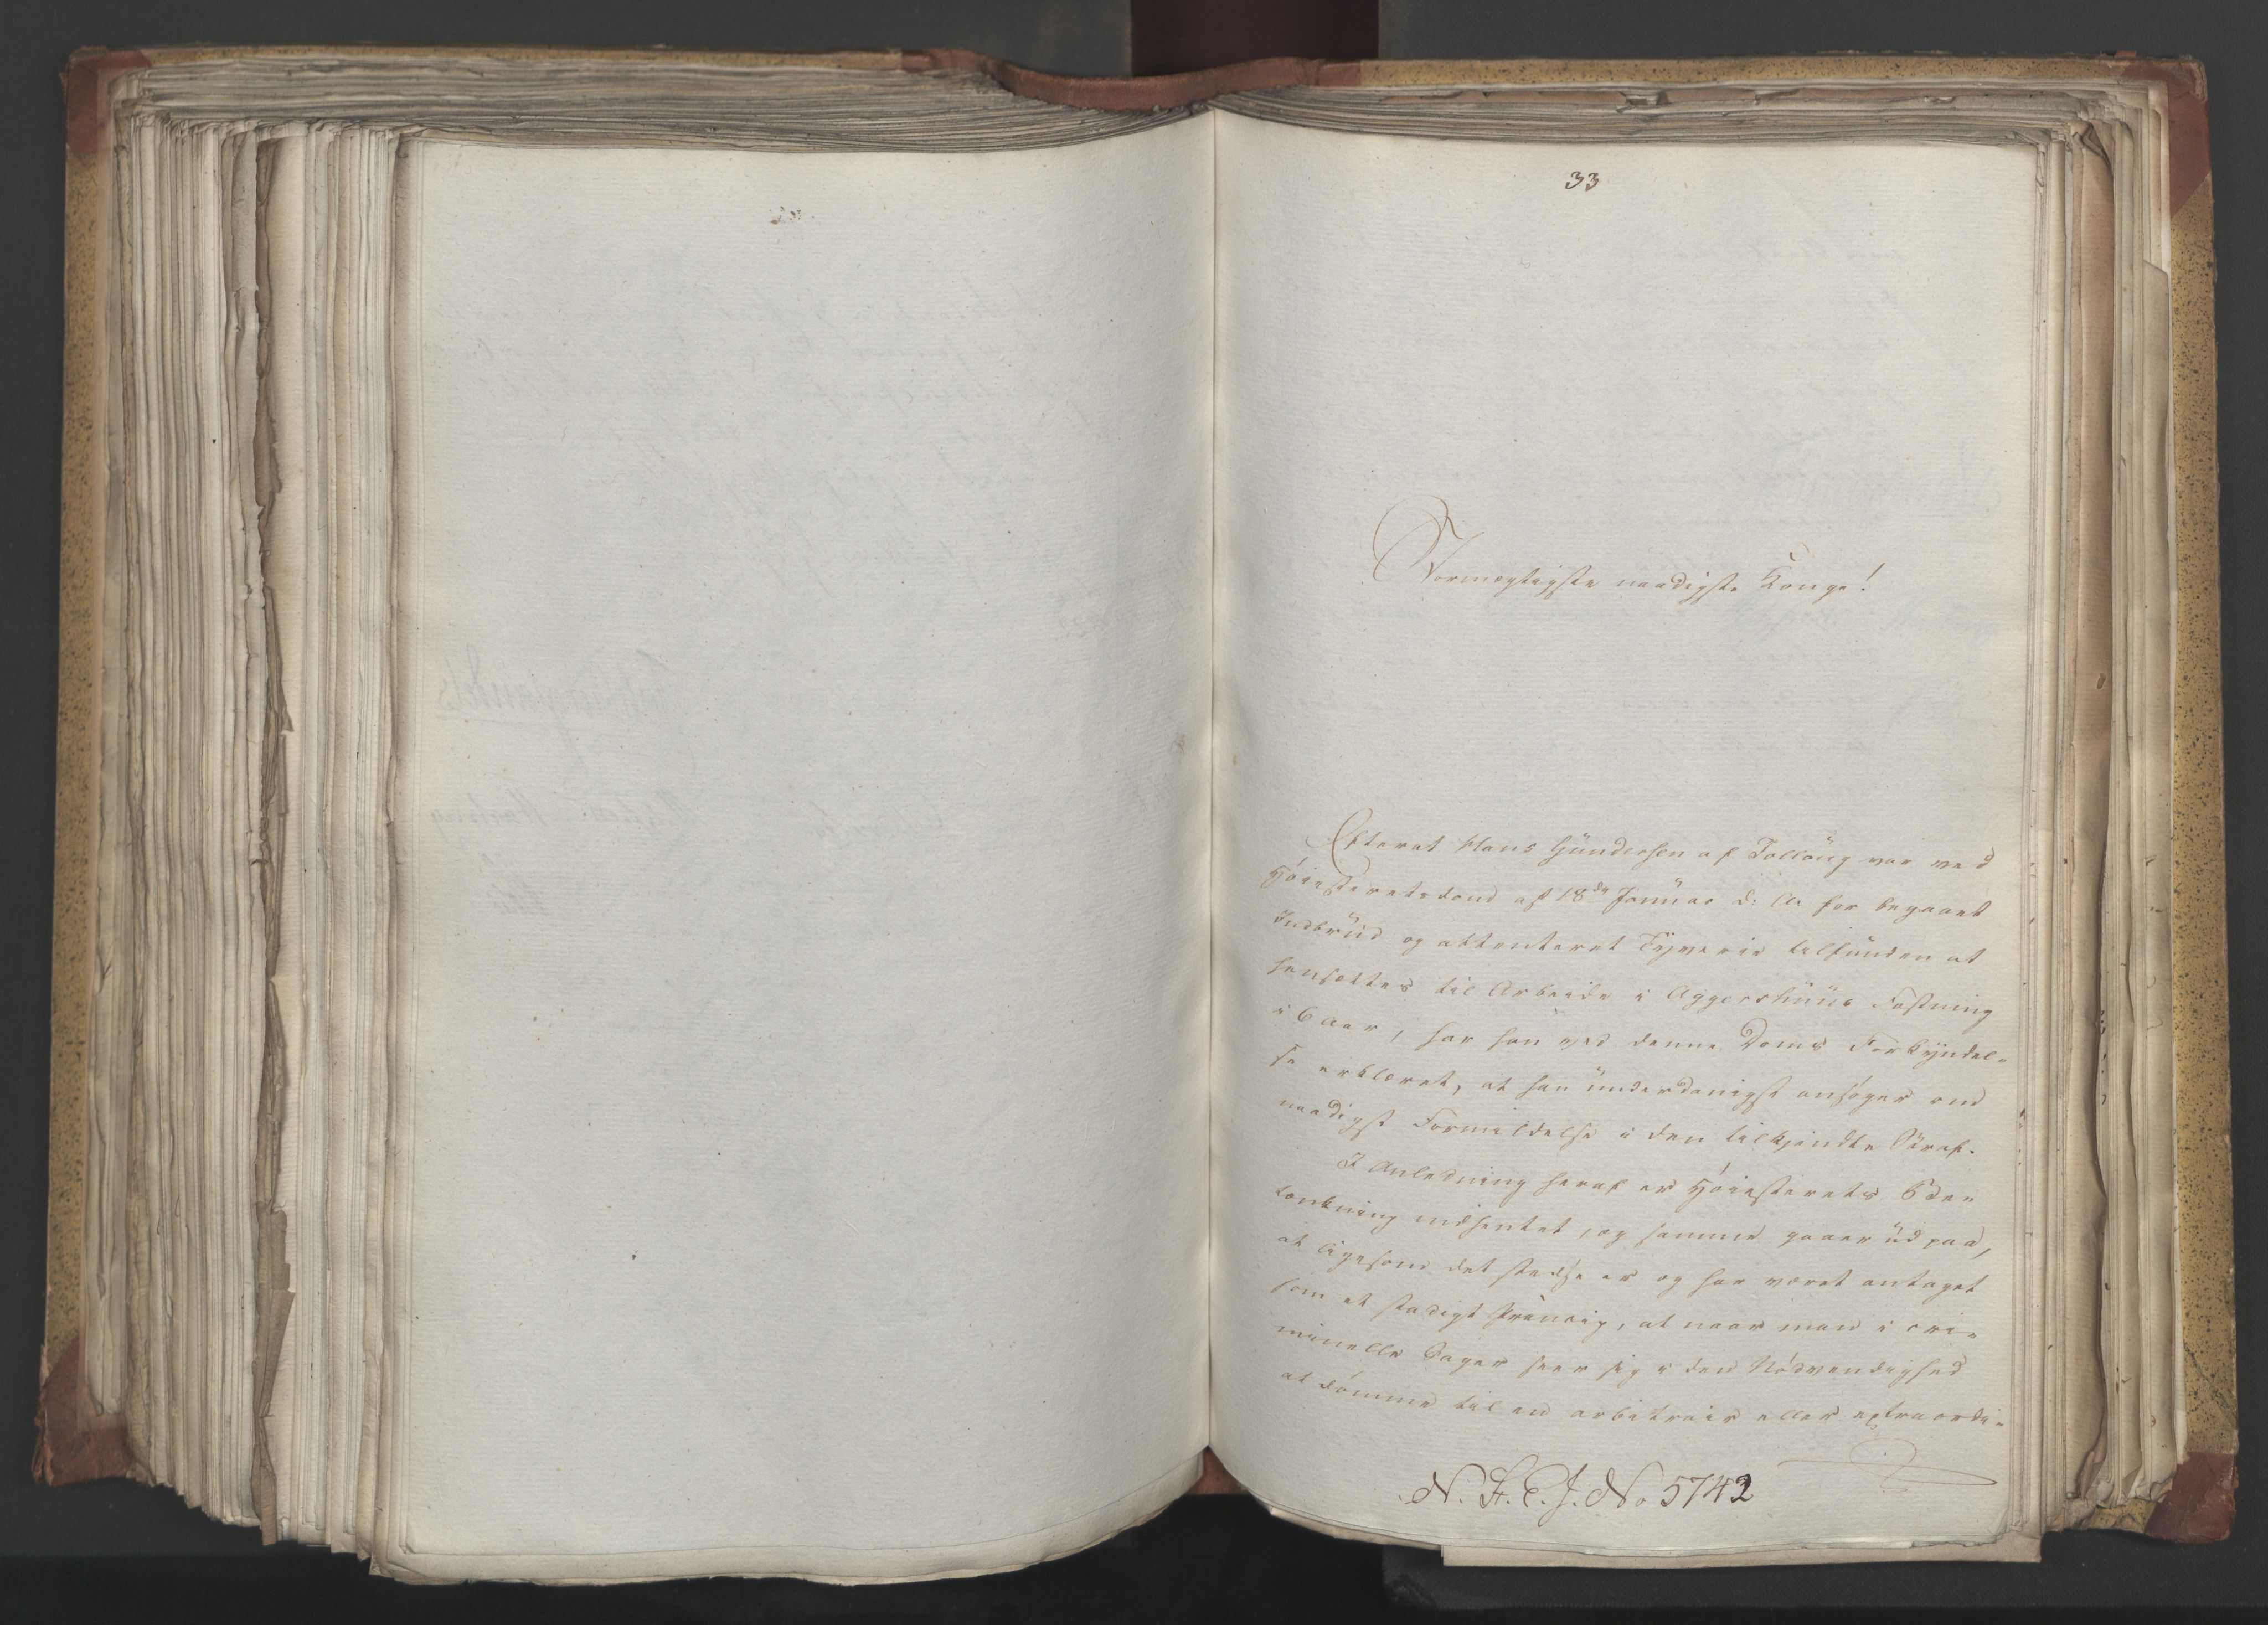 33
Stormægtigste naadigste Konge!
Efterat Hans Gundersen af Tolloug var ved
Høiesteretsdom af 18de Januar d: A: for begaaet
Indbrud og attenteret Tyverie tilfunden at
hensættes til Arbeide i Aggershuus Fæstning
i 6 Aar, har han ved denne Doms Forkyndel-
se erklæret, at han underdanigst ansøger om
naadigst Formildelse i den tilkjendte Straf.
I Anledning heraf er Høiesterets Be-
tænkning indhentet, og samme gaaer ud paa,
at ligesom det stedse er og har været antaget
som et stadigt Princip, at naar man i cri-
minelle Sager seer sig i den Nödvendighed
at dømme til en arbitrair eller extraordi-
N. F. C. J. No 5742